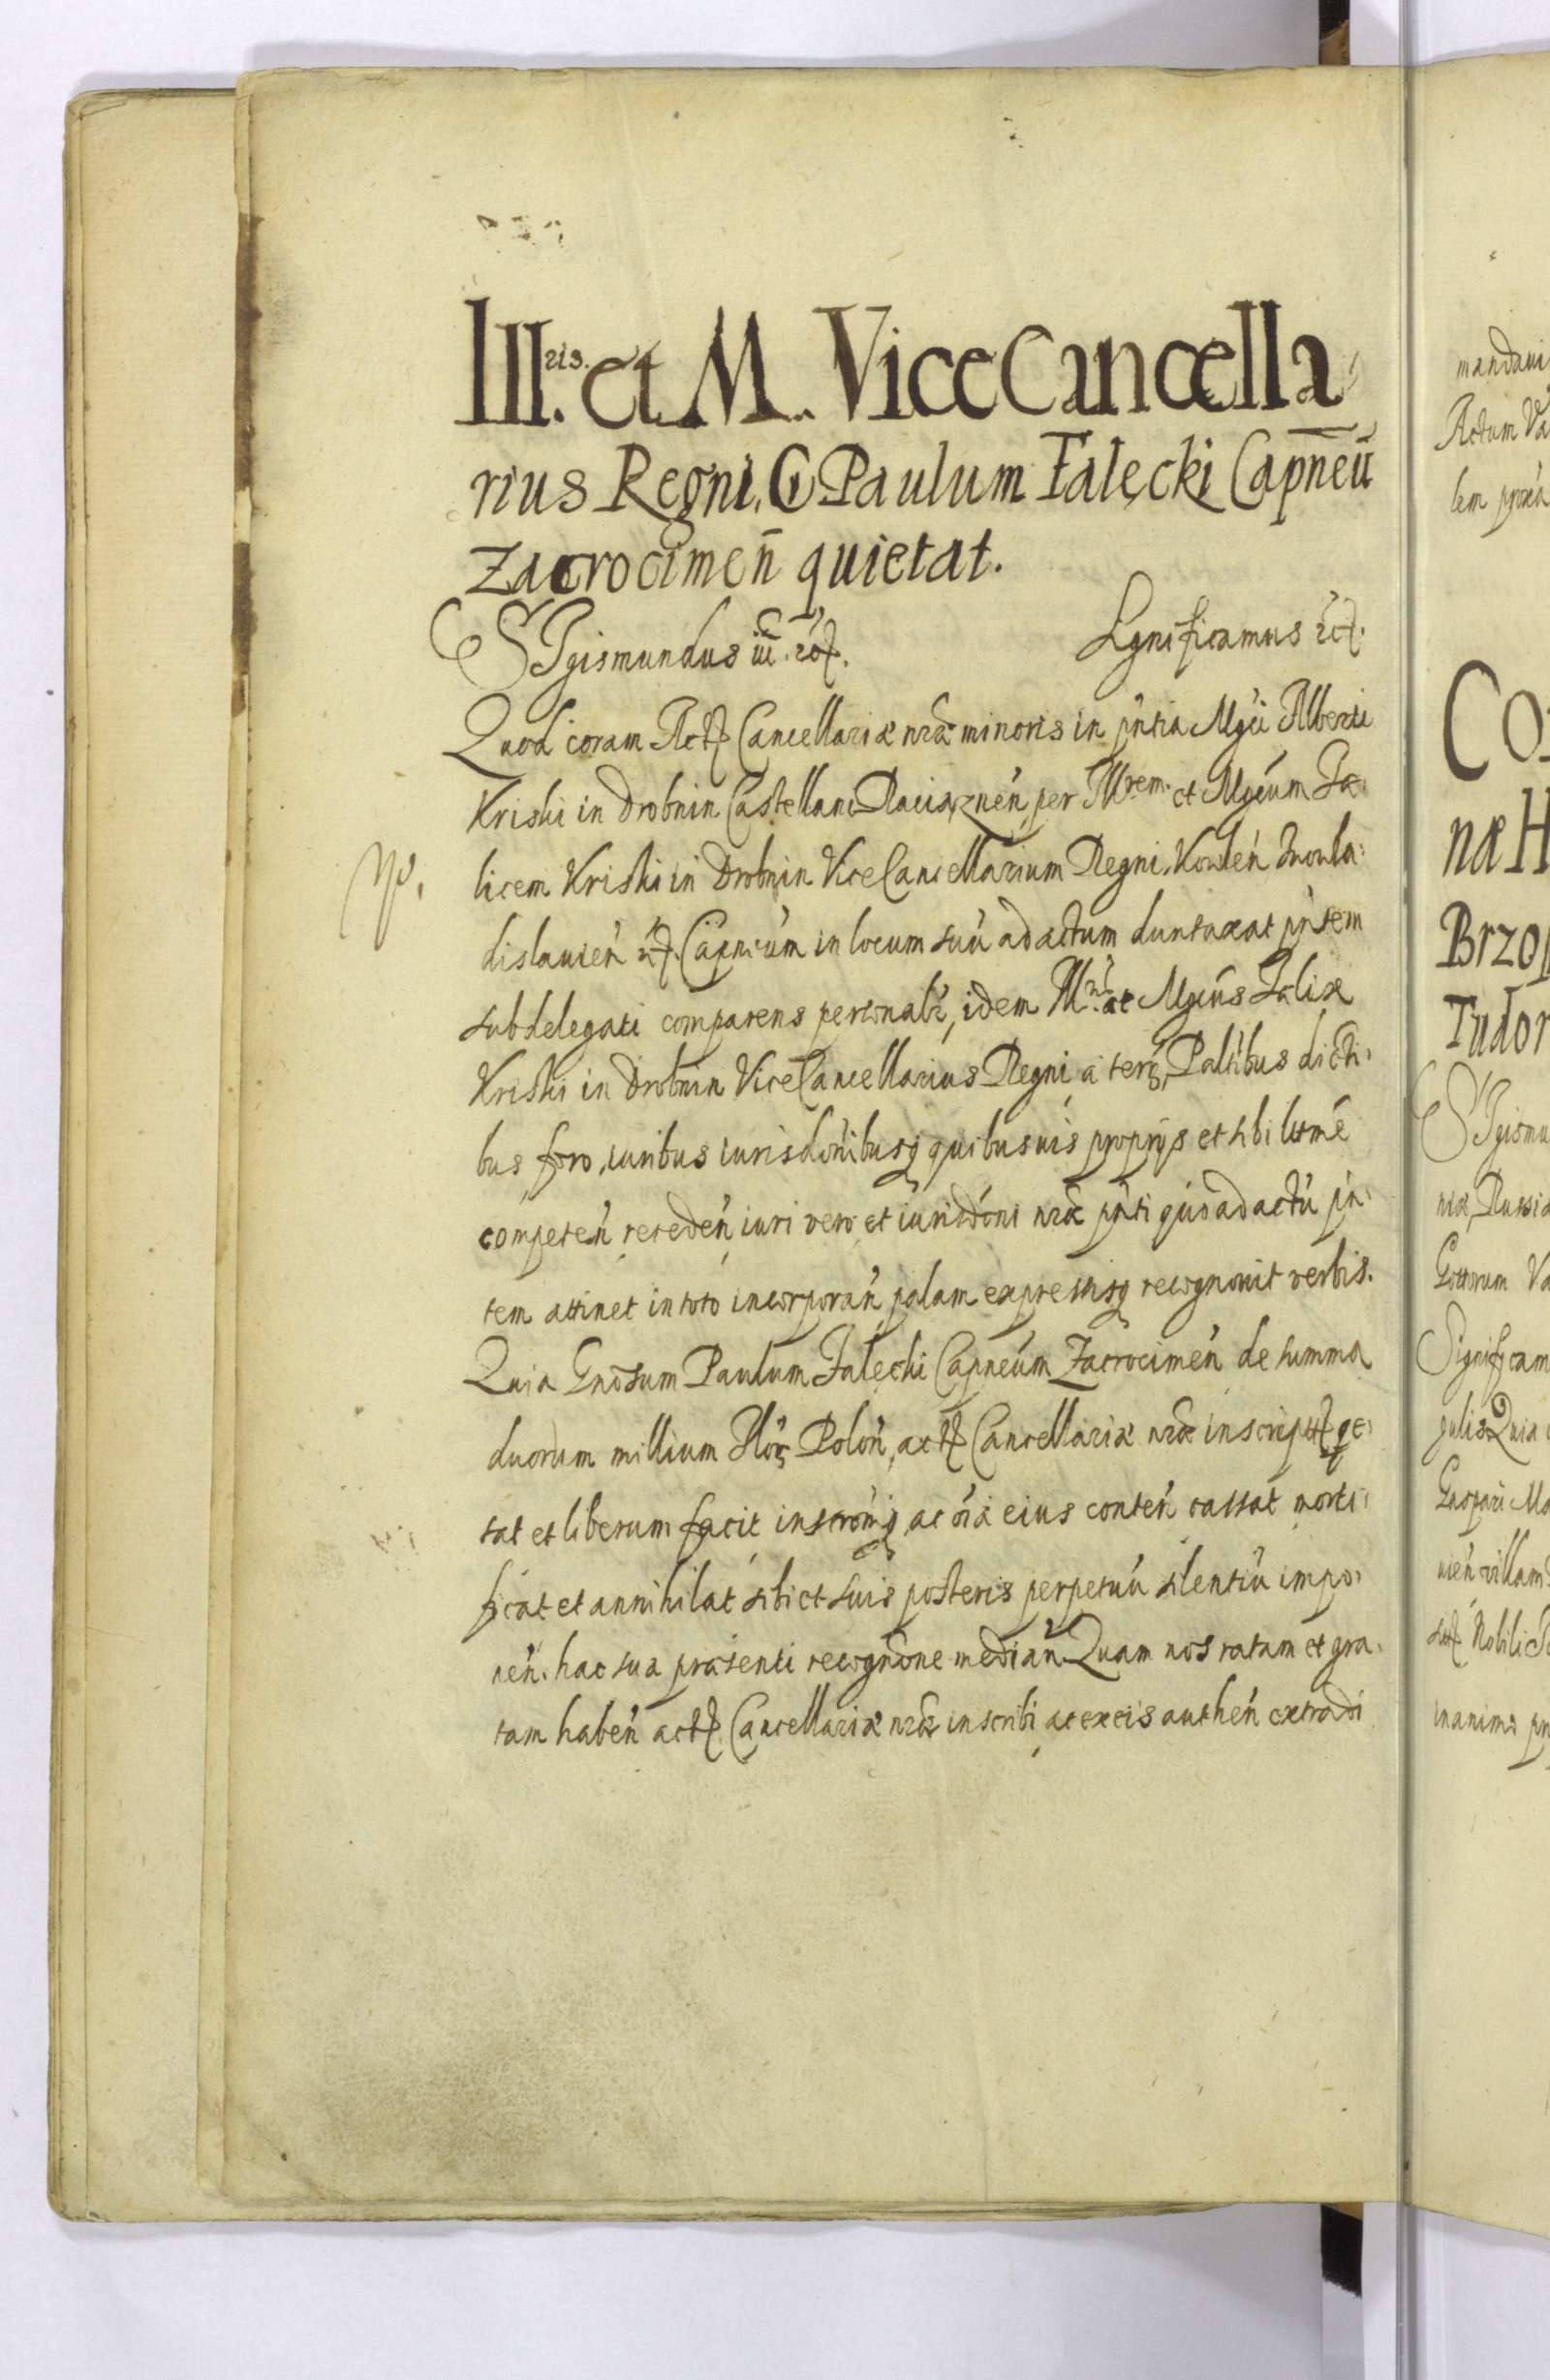 Ill.ris. et M. ViceCancella
rius Regni. G Paulum Falęcki Capneū
Zacrocimen̄ quietat.
SIgismundus iii. etc. Significamus etc.
Quod coram Actis Cancellariæ nræ minoris in pn̄tia Mgci Alberti
Kriski in Drobnin Castellani Raciąznen̄ per Illrem. et Mgcum Fæ
licem Kriski in Drobnin ViceCancellarium Regni, Kowlen̄ Inowla
dislauien̄ etc. Capneūm in locum suū ad actum duntaxat pn̄tem
subdelegati comparens personalr̄, idem Illris. ac Mgcus Fælix
Kriski in Drobnin ViceCancellarius Regni a terris, Palt̄ibus disti
bus foro, iuribus iurisdōnibusq quibusuis proprijs et sibi ltmē
competen̄ receden̄ iuri vero et iurisdōni nræ pn̄ti quo ad actū pn̄
tem attinet in toto incorporan̄ palam expressisq recognouit verbis.
Quia Gnōsum Paulum Falęcki Capneūm Zacrocimen̄ de summa
duorum millium Flor. Polon̄, actis Cancellariæ nræ inscriptis qe
tat et liberum facit inscrōmq ac oīa eius conten̄ cassat morti
ficat et annihilat sibi et suis posteris perpetuū silentiū impo
nen̄. hac sua præsenti recognōne median̄ Quam nos ratam et gra
tam haben̄ actis Cancellariæ nræ inscribi ac ex eis authen̄ extradi
mandaui
Actum Va
CO
næ H
Brzo
Tudor
SIgismu
niæ, Russiæ
Gottorum Va
Significam
Gaspari Ma